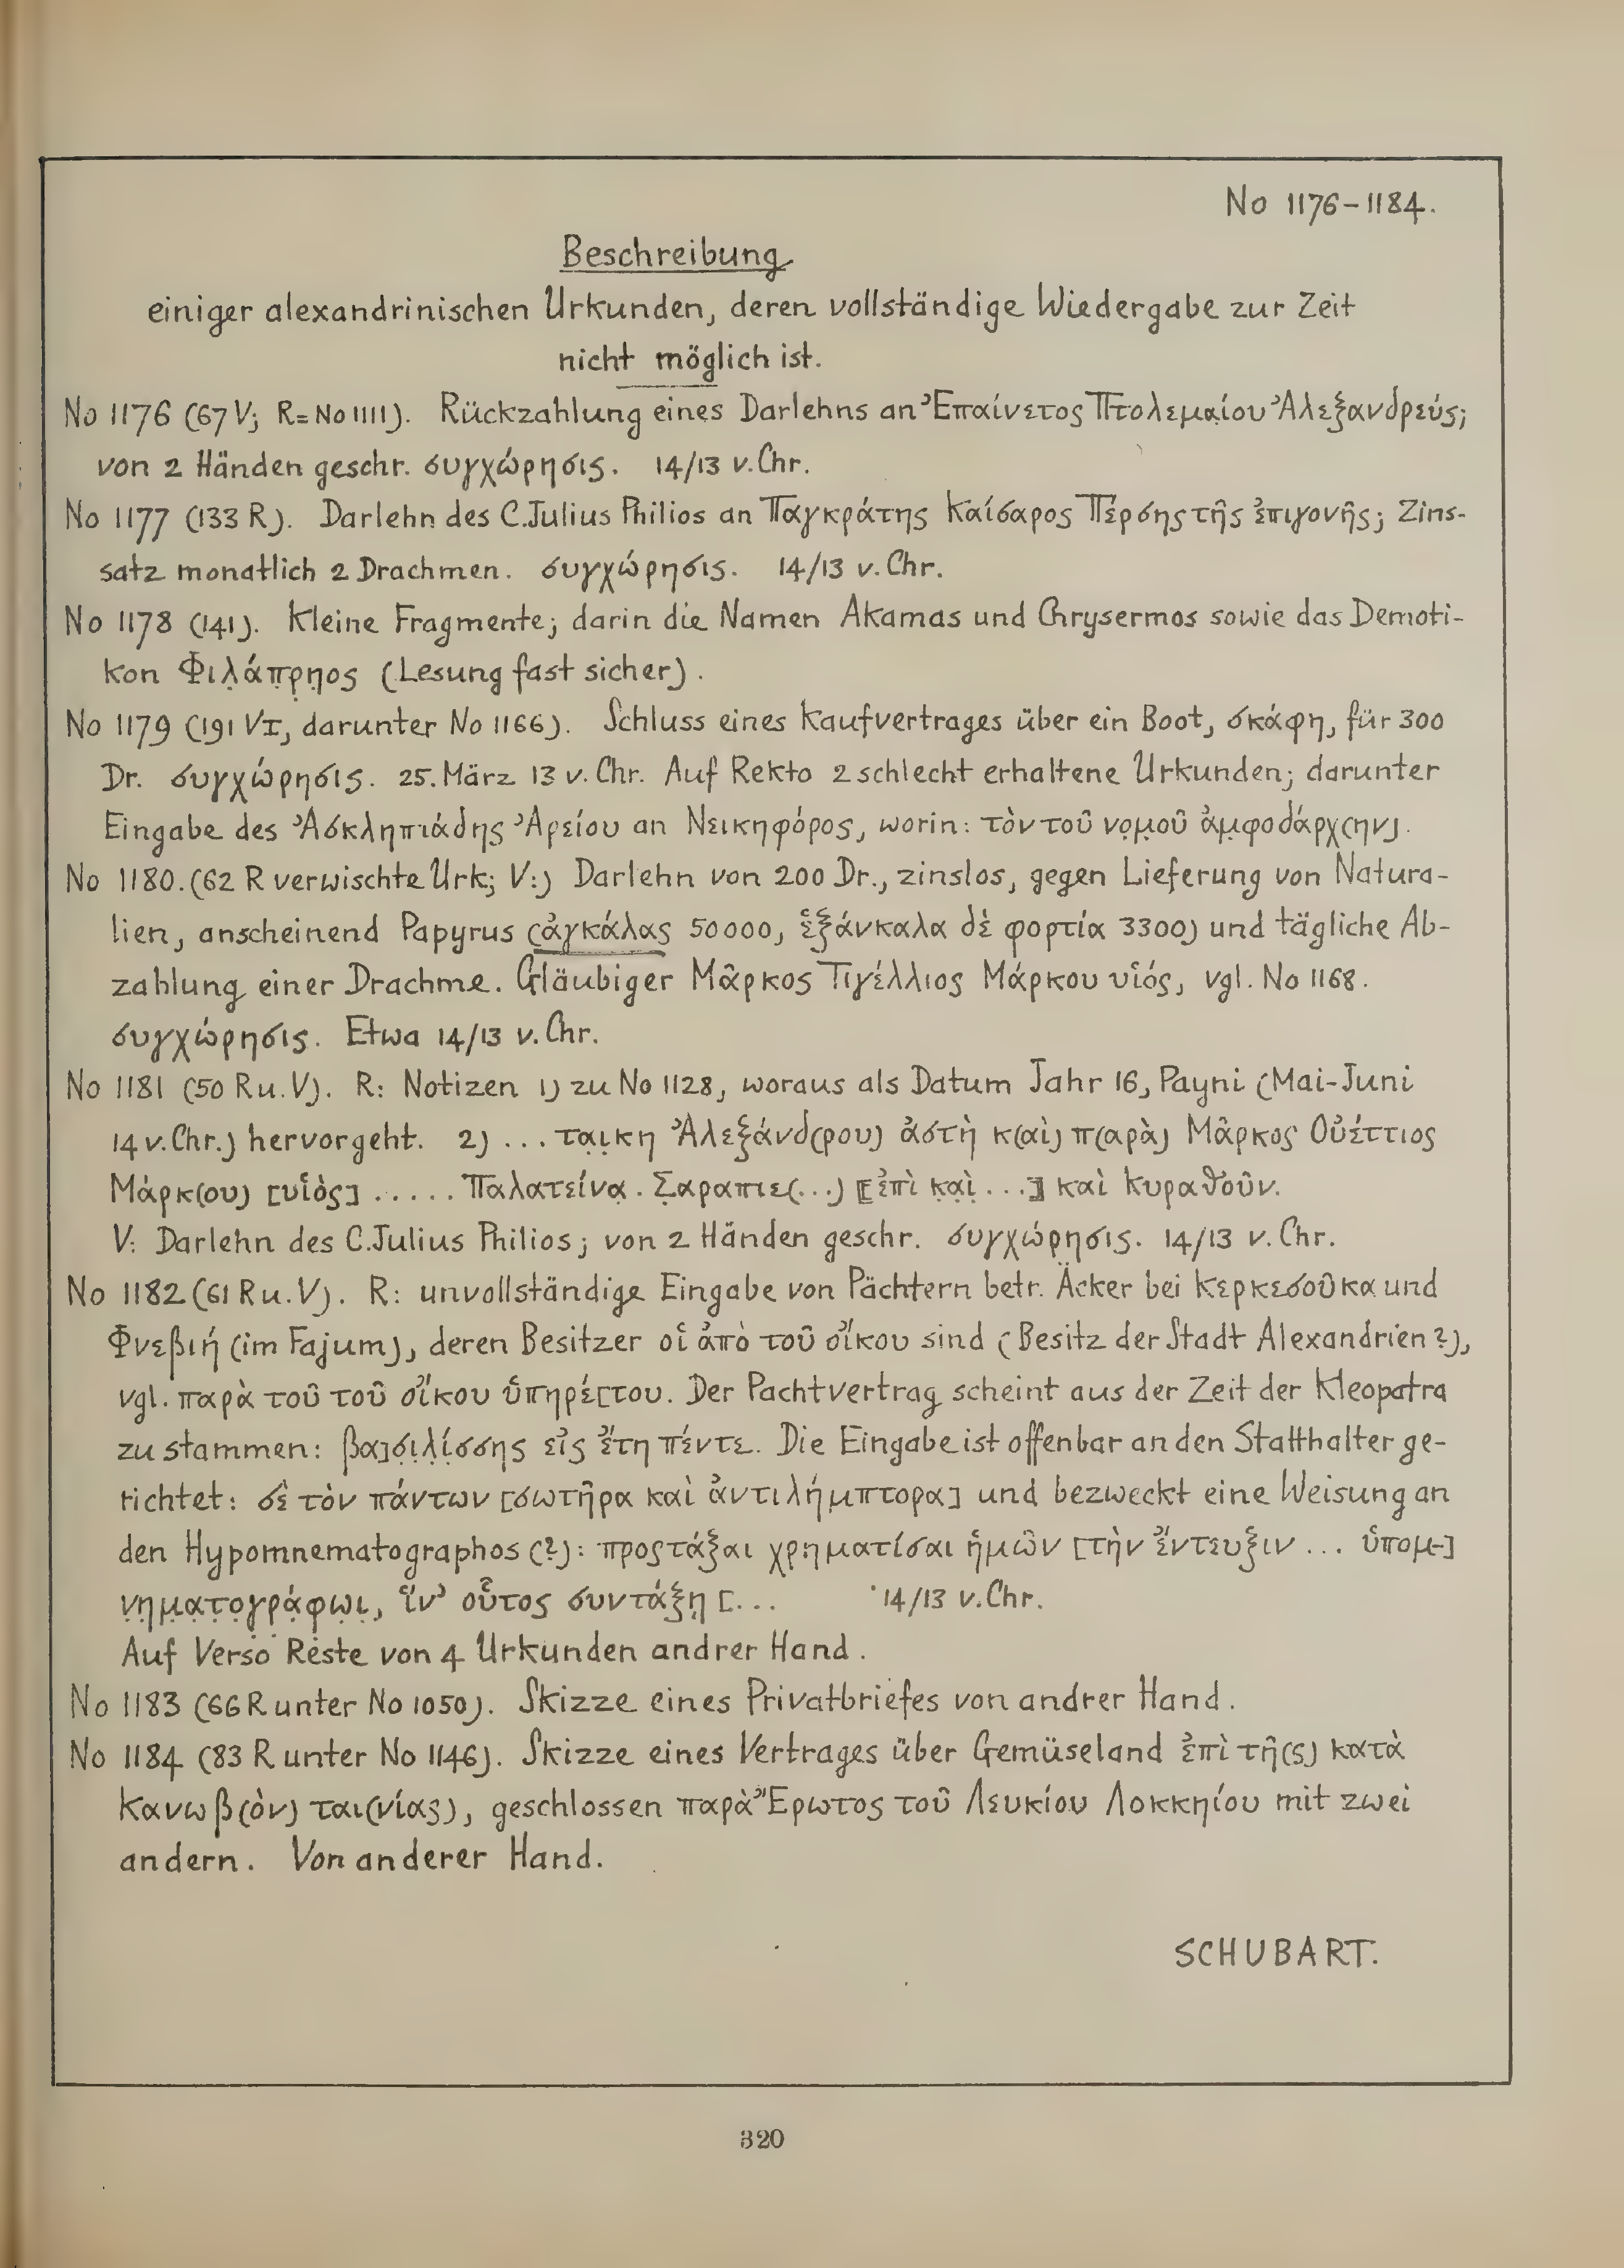 No 1176-1184.
Beschreibung
einiger alexandrinischen Urkunden, deren vollständige Wiedergabe zur Zeit
nicht möglich ist.
No 1176 (67 V; R = No 1111). Rückzahlung eines Darlehns an Ἐπαίνετος Πτολεμαίου Ἀλεξανδρεύς;
von 2 Händen geschr. συγχώρησις. 14/13 v. Chr.
No 1177 (133 R). Darlehn des C. Julius Philios an Παγκράτης Καίσαρος Πέρσης τῆς ἐπιγονῆς; Zins-
satz monatlich 2 Drachmen. συγχώρησις. 14/13 v. Chr.
No 1178 (141). Kleine Fragmente; darin die Namen Akamas und Chrysermos sowie das Demoti-
kon Φιλ̣άπ̣ρ̣η̣ος (Lesung fast sicher).
No 1179 (191 VI, darunter No 1166). Schluss eines Kaufvertrages über ein Boot, σκάφη, für 300
Dr. συγχώρησις. 25. März 13 v. Chr. Auf Rekto 2 schlecht erhaltene Urkunden; darunter
Eingabe des Ἀσκληπιάδης Ἀρείου an Νεικηφόρος, worin: τὸν τοῦ νο̣μ̣οῦ ἀμ̣φοδάρχ(ην).
No 1180. (62 R verwischte Urk; V:) Darlehn von 200 Dr., zinslos, gegen Lieferung von Natura-
lien, anscheinend Papyrus (ἀγκάλας 50000, ἑξάνκαλα δὲ φορτία 3300) und tägliche Ab-
zahlung einer Drachme. Gläubiger Μᾶρκος Τιγέλλιος Μάρκου υἱός, vgl. No 1168.
συγχώρησις. Etwa 14/13 v. Chr.
No 1181 (50 R u. V). R: Notizen 1) zu No 1128, woraus als Datum Jahr 16, Payni (Mai-Juni
14 v. Chr.) hervorgeht. 2) ... τα̣ι̣κη Ἀλεξάνδ(ρου) ἀστὴ κ(αὶ) π(αρὰ) Μᾶρκος Οὐέττιος
Μάρκ(ου) [υἱὸς] ..... Παλατείνα̣. Σ̣αραπιε(...) ⟦ἐπὶ κα̣ὶ̣ ...⟧ καὶ Κυραθοῦν.
V: Darlehn des C. Julius Philios; von 2 Händen geschr. συγχώρησις. 14/13 v. Chr.
No 1182 (61 R u. V). R: unvollständige Eingabe von Pächtern betr. Äcker bei Κερκεσοῦκα und
Φνεβιή (im Fajum), deren Besitzer οἱ ἀπὸ τοῦ οἴκου sind (Besitz der Stadt Alexandrien?),
vgl. παρὰ τοῦ τοῦ οἴκου ὑπηρέ[του. Der Pachtvertrag scheint aus der Zeit der Kleopatra
zu stammen: βα]σ̣ι̣λ̣ί̣σσης εἰς ἔτη πέντε. Die Eingabe ist offenbar an den Statthalter ge-
richtet: σὲ τὸν πάντων [σωτῆρα καὶ ἀντιλήμπτορα] und bezweckt eine Weisung an
den Hypomnematographos (?): προςτάξαι χρηματίσαι ἡμῶν [τὴν ἔντευξιν ... ὑπομ-]
ν̣η̣μ̣α̣τ̣ο̣γρ̣ά̣φ̣ω̣ι̣, ἵν' οὗτος συντάξῃ [... 14/13 v. Chr.
Auf Verso Reste von 4 Urkunden andrer Hand.
No 1183 (66 R unter No 1050). Skizze eines Privatbriefes von andrer Hand.
No 1184 (83 R unter No 1146). Skizze eines Vertrages über Gemüseland ἐπὶ τῆ(ς) κατὰ
Κανωβ(ὸν) ται(νίας), geschlossen παρὰ Ἔρωτος τοῦ Λευκίου Λοκκηίου mit zwei
andern. Von anderer Hand.
SCHUBART.
320